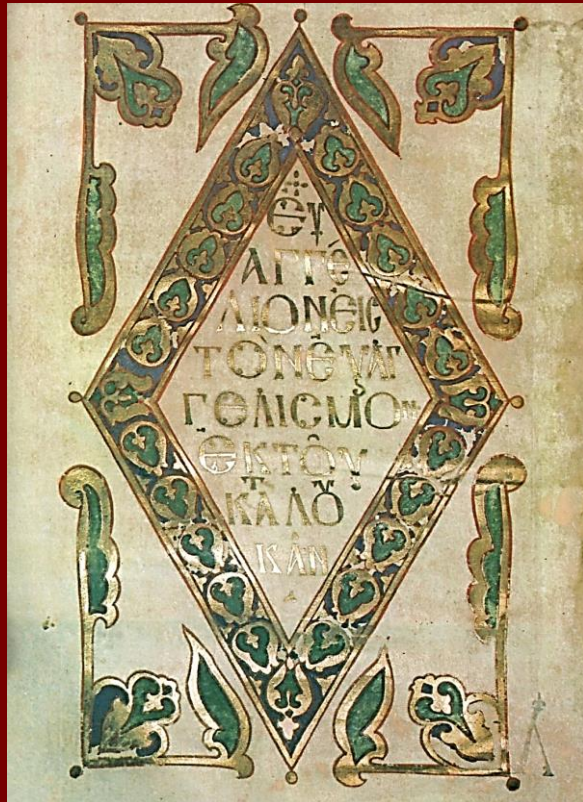 ΕΥ
ΑΓΓΕ
ΛΙΟΝ ΕΙϹ
ΤΟΝ ΕΥΑΓ
ΓΕΛΙϹΜΟΝ
ΕΚ ΤΟΥ
ΚΑΤΑ ΛΟΥ
ΚΑΝ